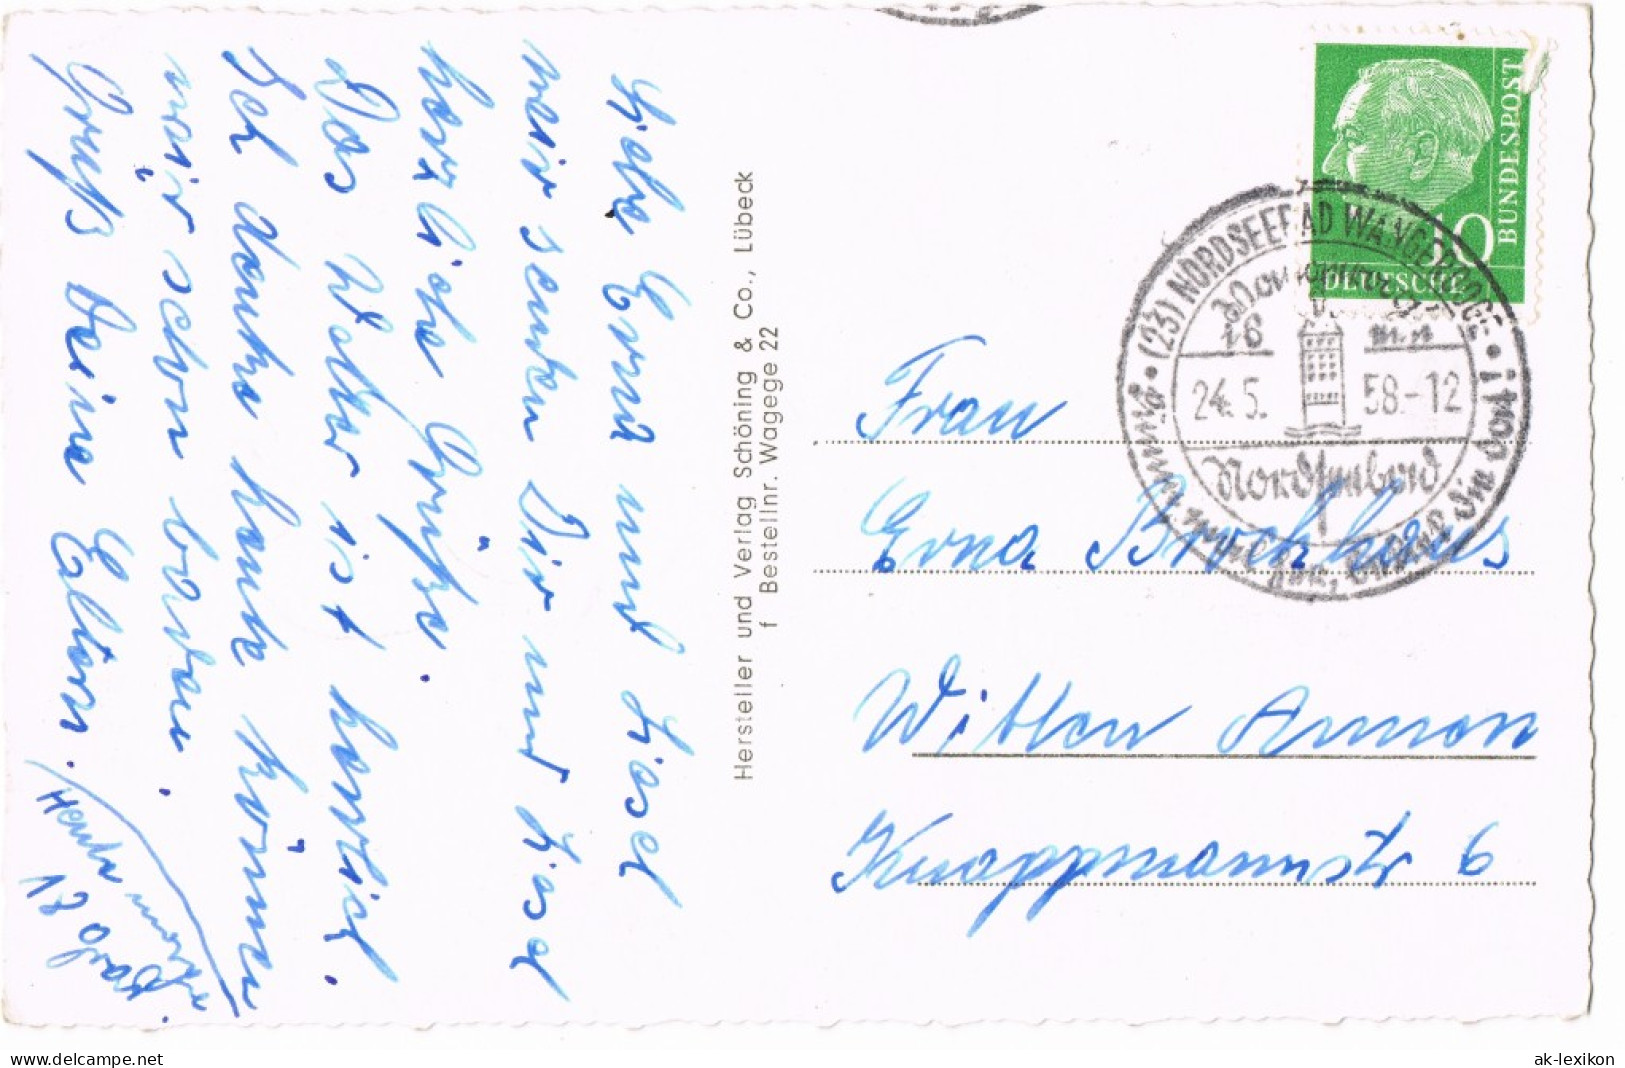 Liebe Erna und Liesel
wir senden Dir und Liesel
herzliche Grüße.
Das Wetter ist herrlich.
Ich danke heute können
wir schon baden.
Gruß Deine Eltern.
Heute morgen
17
Hersteller und Verlag Schöning & Co., Lübeck
f Bestellnr. Wagege 22
DEUTSCHE BUNDESPOST
10
(23) NORDSEEBAD WANGEROOGE
24.5.58.-12
Nordseebad
Frau
Erna Brockhaus
Witten Annen
Knappmannstr 6
ak-lexikon
www.delcampe.net